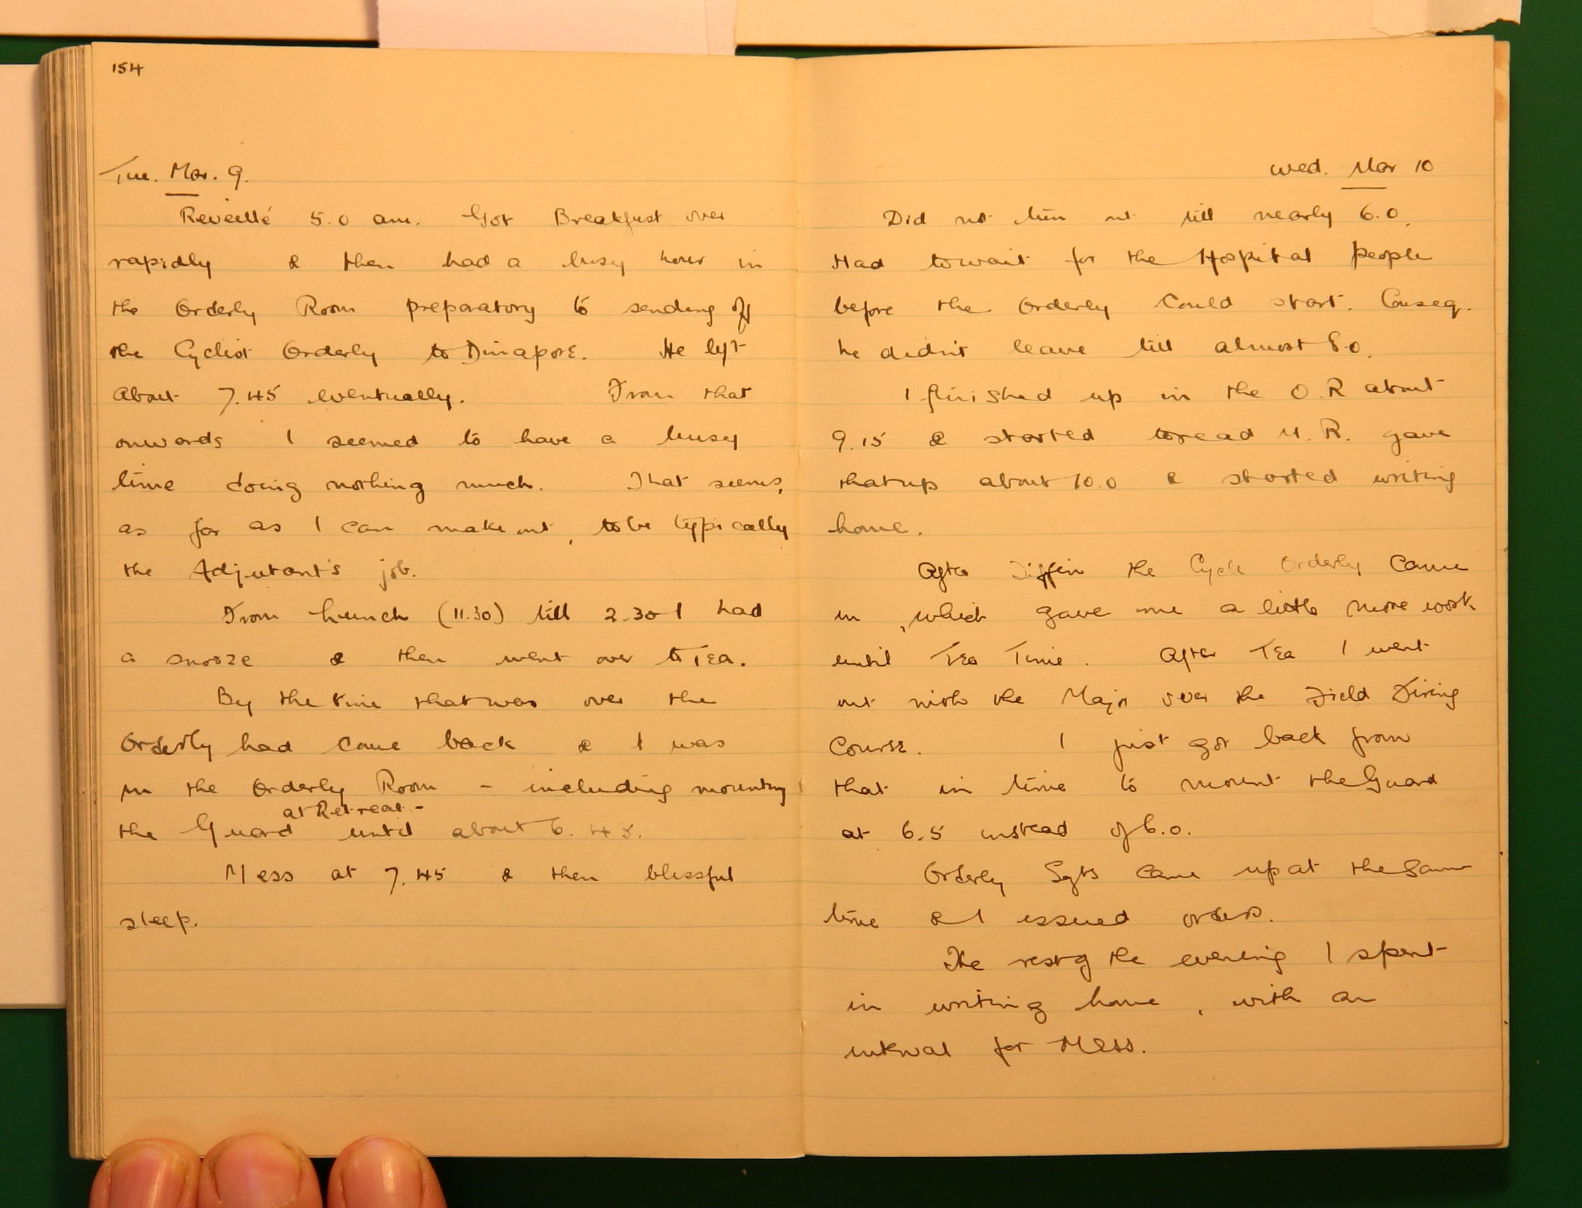 154
Tue. Mar. 9.
Reveillé 5.0 am. Got Breakfast over
rapidly & then had a busy hour in
the Orderly Room preparatory to sending off
the Cyclist Orderly to Dinapore. He left
about 7.45 eventually. From that
onwards I seemed to have a busy
time doing nothing much. That seems,
as far as I can make out, to be typically
the Adjutant's job.
From Lunch (11.30) till 2.30 I had
a snooze & then went over to Tea.
By the time that was over the
Orderly had come back & I was
in the Orderly Room - including mounting
at Retreat -
the Guard until about 6.45.
Mess at 7.45 & then blissful
sleep.
Wed. Mar 10
Did not turn out till nearly 6.0.
Had to wait for the Hospital people
before the Orderly could start. Conseq.
he didn't leave till almost 8.0.
I finished up in the O.R about
9.15 & started to read M.R. gave
that up about 10.0 & started writing
home.
After Tiffin the Cycle Orderly came
in, which gave me a little more work
until Tea Time. After Tea I went
out with the Major over the Field Firing
Course. I just got back from
that in time to mount the Guard
at 6.5 instead of 6.0.
Orderly Sgts came up at the same
time & I issued orders.
The rest of the evening I spent
in writing home, with an
interval for Mess.